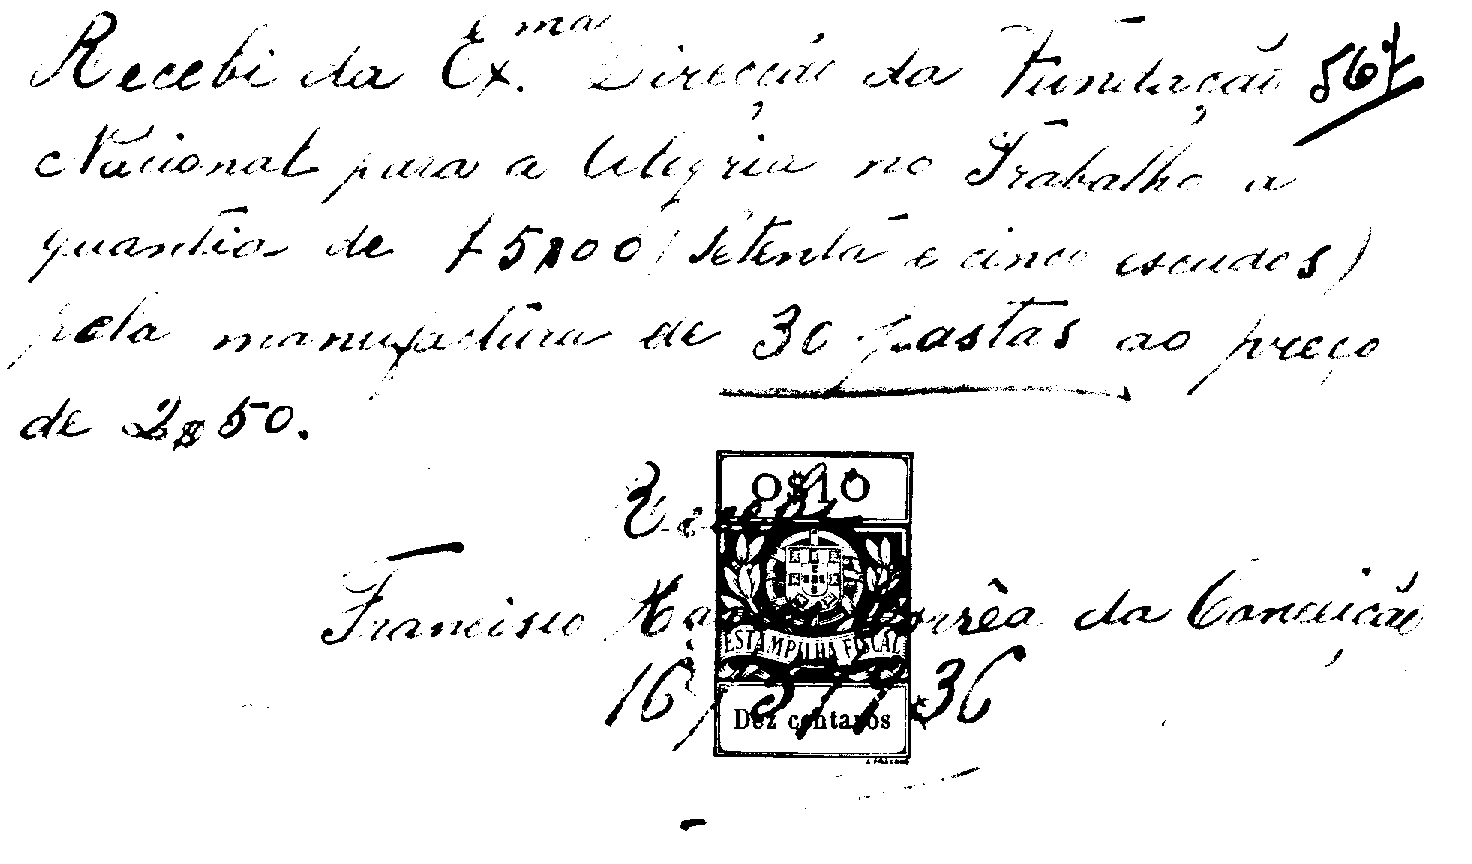 Recebi da Ex.ma Direcção da Fundação 567
Nacional para a Alegria no Trabalho a
quantia de 75$00 (Setenta e cinco escudos)
pela manufactura de 30 pastas ao preço
de 2$50.
0$10
Francisco Correa da Conceição
ESTAMPILHA FISCAL
16/3/1936
Dez centavos